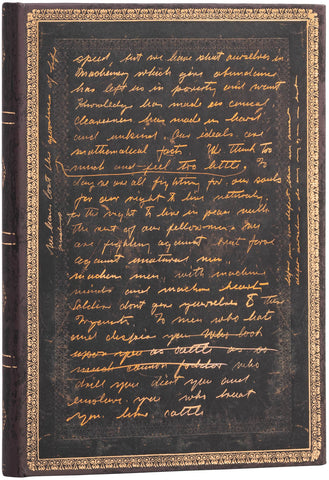 speed but we have shut ourselves in
Machinery which gives abundance
has left us in poverty and want
Knowledge has made us cynical
Cleverness has made us hard
and unkind. Our ideals are
mathematical facts. We think to
much and feel too little. To
day we are all fighting for our souls
for our right to live naturally
for the right to live in peace with
the rest of our fellowmen. We
are fighting against brut force
against unatural men
machine men, with machine
minds and machine hearts
Soldiers dont give yourselves to these
To men who hate
and despise you who look
upon you as cattle and as
cannon fodder who
drill you diet you and
enslave you who treat
you like cattle
We have lost the